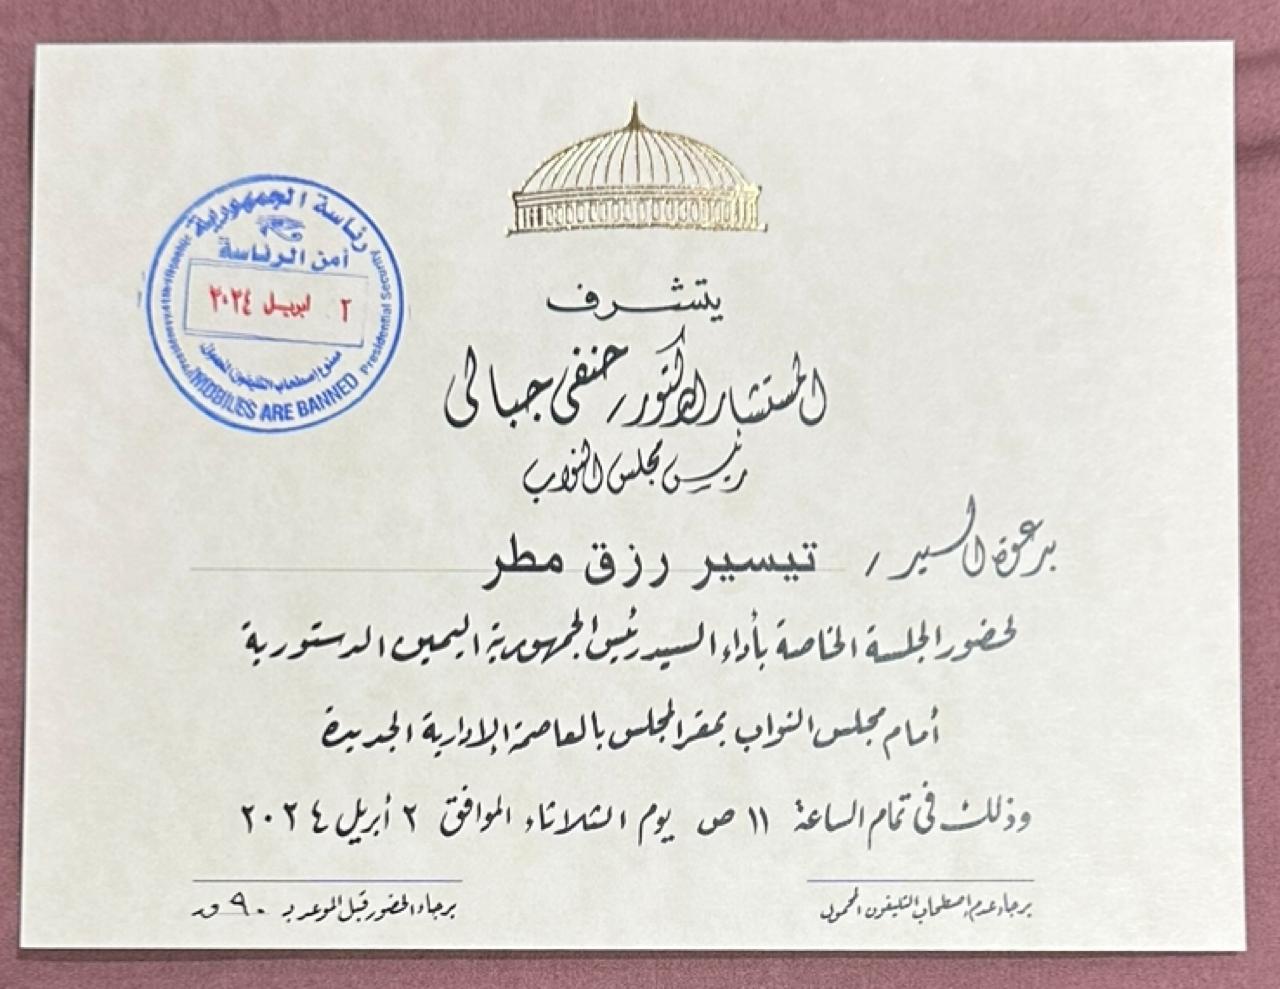 رئاسة الجمهورية
أمن الرئاسة
٢ ابريل ٢٠٢٤
ممنوع إصطحاب التليفون المحمول
Presidential Security
MOBILES ARE BANNED
يتشرف
المستشار الدكتور / حنفى جبالى
رئيس مجلس النواب
بدعوة السيد / تيسير رزق مطر
لحضور الجلسة الخاصة بأداء السيد رئيس الجمهورية اليمين الدستورية
أمام مجلس النواب بمقر المجلس بالعاصمة الإدارية الجديدة
وذلك فى تمام الساعة ١١ ص يوم الثلاثاء الموافق ٢ أبريل ٢٠٢٤
برجاء عدم إصطحاب التليفون المحمول
برجاء الحضور قبل الموعد بـ ٩٠ ق